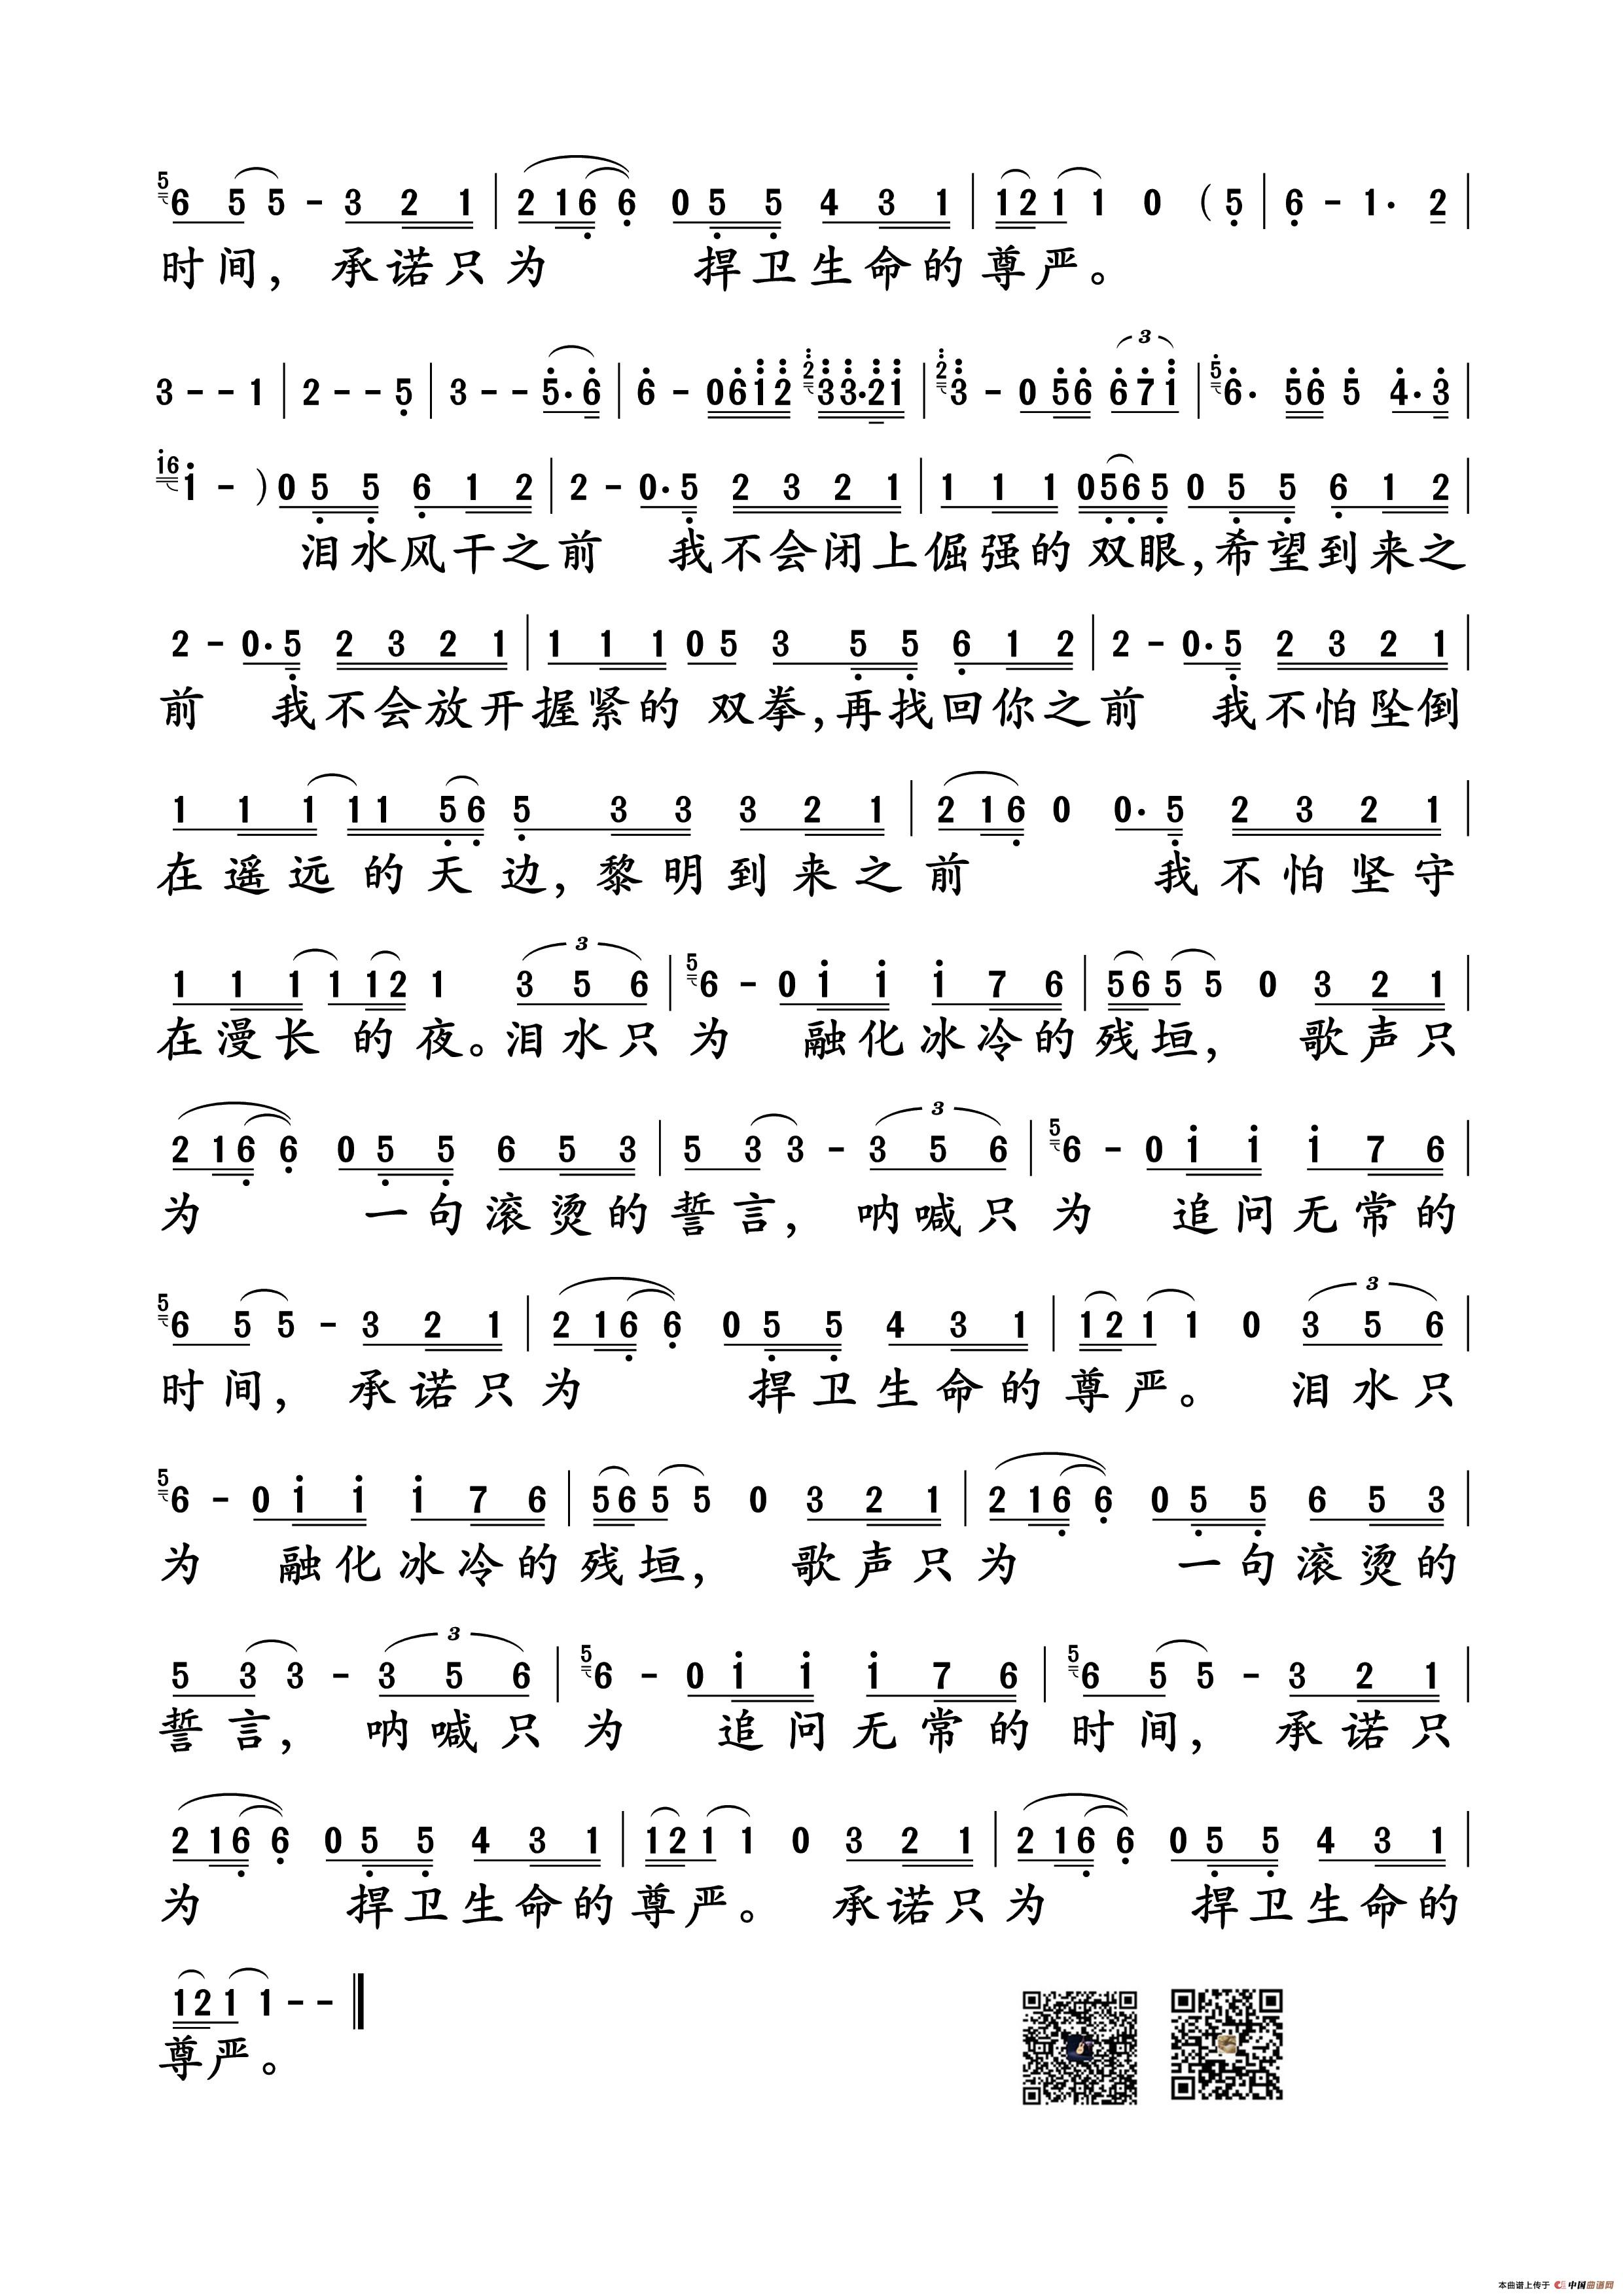 5 6 5 5 - 3 2 1 | 2 1 6 6 0 5 5 4 3 1 | 1 2 1 1 0 ( 5 | 6 - 1 · 2 |
时间，承诺只为 捍卫生命的尊严。
3 - - 1 | 2 - - 5 | 3 - - 5 · 6 | 6 - 0 6 1 2 2 3 3 · 2 1 | 2 3 - 0 5 6 3 6 7 1 | 5 6 · 5 6 5 4 · 3 |
1 6 1 - ) 0 5 5 6 1 2 | 2 - 0 · 5 2 3 2 1 | 1 1 1 0 5 6 5 0 5 5 6 1 2 |
泪水风干之前 我不会闭上倔强的双眼,希望到来之
2 - 0 · 5 2 3 2 1 | 1 1 1 0 5 3 5 5 6 1 2 | 2 - 0 · 5 2 3 2 1 |
前 我不会放开握紧的双拳,再找回你之前 我不怕坠倒
1 1 1 1 1 5 6 5 3 3 3 2 1 | 2 1 6 0 0 · 5 2 3 2 1 |
在遥远的天边,黎明到来之前 我不怕坚守
1 1 1 1 1 2 1 3 3 5 6 | 5 6 - 0 1 1 1 7 6 | 5 6 5 5 0 3 2 1 |
在漫长的夜。泪水只为 融化冰冷的残垣, 歌声只
2 1 6 6 0 5 5 6 5 3 | 5 3 3 - 3 3 5 6 | 5 6 - 0 1 1 1 7 6 |
为 一句滚烫的誓言, 呐喊只为 追问无常的
5 6 5 5 - 3 2 1 | 2 1 6 6 0 5 5 4 3 1 | 1 2 1 1 0 3 3 5 6 |
时间, 承诺只为 捍卫生命的尊严。 泪水只
5 6 - 0 1 1 1 7 6 | 5 6 5 5 0 3 2 1 | 2 1 6 6 0 5 5 6 5 3 |
为 融化冰冷的残垣, 歌声只为 一句滚烫的
5 3 3 - 3 3 5 6 | 5 6 - 0 1 1 1 7 6 | 5 6 5 5 - 3 2 1 |
誓言, 呐喊只为 追问无常的时间, 承诺只
2 1 6 6 0 5 5 4 3 1 | 1 2 1 1 0 3 2 1 | 2 1 6 6 0 5 5 4 3 1 |
为 捍卫生命的尊严。 承诺只为 捍卫生命的
1 2 1 1 - -
尊严。
本曲谱上传于 中国曲谱网